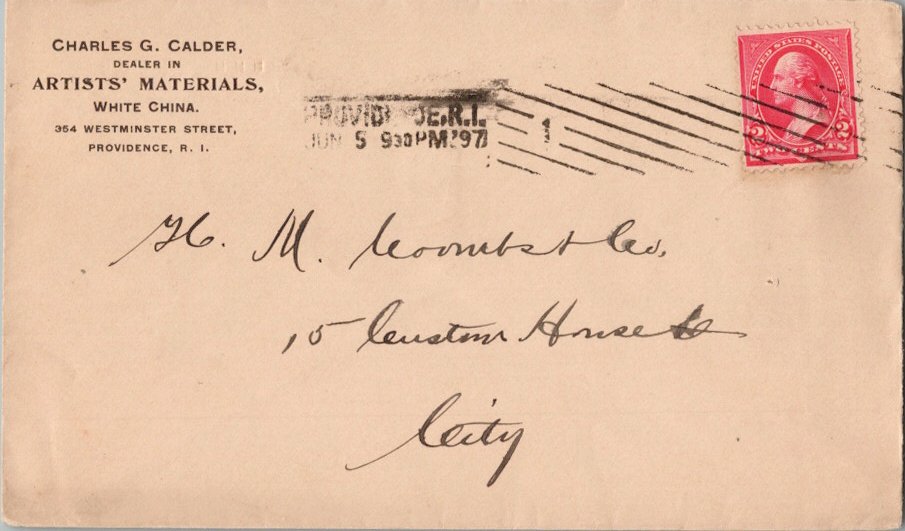 CHARLES G. CALDER,
DEALER IN
ARTISTS' MATERIALS,
WHITE CHINA.
354 WESTMINSTER STREET,
PROVIDENCE, R. I.
JUN 5 930PM '97
1
UNITED STATES POSTAGE
2 2
TWO CENTS
H. M. Coombs & Co.
15 Custom House St
City